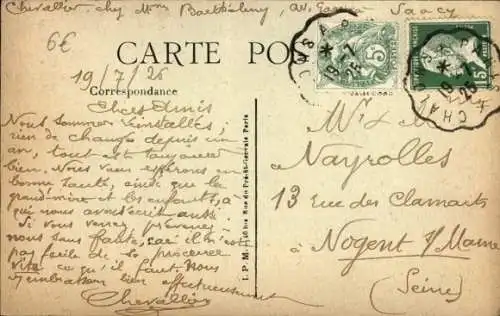 Chevallier chez Mme Barthélemy, av. Saacy
6€
CARTE PO
19/7/25
Correspondance
Chers Amis
Nous sommes installés;
rien de changé depuis un
an, tout est toujours
bien. Nous vous espérons en
bonne santé, ainsi que la
grand-mère et les enfants, à
qui nous avons écrit aussi.
Si vous venez prévenez-
nous sans faute, car il n'est
pas facile de se procurer
vite ce qu'il faut. Nous
embrassons bien affectueusement
Chevallier
I. P. M. Rue du Pré-St-Gervais Paris
5
15
19-7
25
19-7
25
CHA
Mr & Mme
Nayrolles
13 Rue des Clamarts
à
Nogent s/Marne
(Seine)